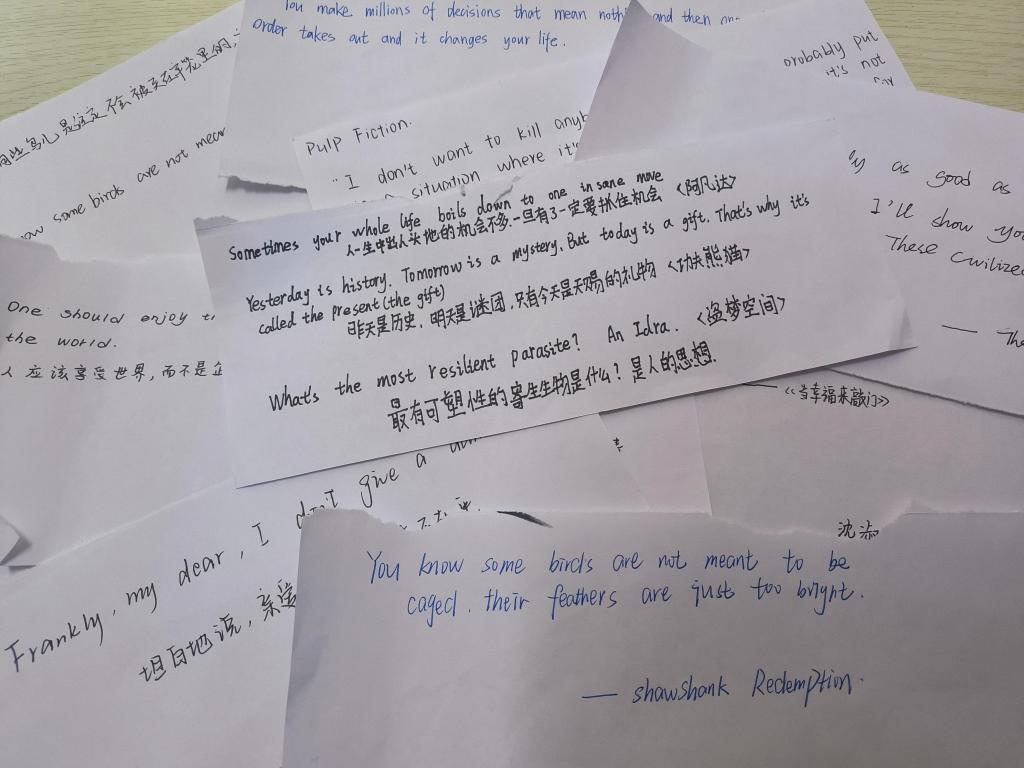 You make millions of decisions that mean and then
order takes out and it changes your life.
probably put
it's not
Pulp Fiction.
"I don't want to kill
situation where it's
some birds are not
as good as
I'll show
These Civilized
Sometimes your whole life boils down to one in sane move
人一生中出人头地的机会不多.一旦有了一定要抓住机会 <阿凡达>
Yesterday is history. Tomorrow is a mystery. But today is a gift. That's why it's
called the present (the gift)
昨天是历史，明天是谜团，只有今天是天赐的礼物 <功夫熊猫>
What's the most resilient parasite? An Idra. <盗梦空间>
最有可塑性的寄生生物是什么？是人的思想.
One should enjoy
the world.
人应该享受世界,而不是
—— 《当幸福来敲门》
Frankly, my dear, I don't give a
坦白地说，亲爱
You know some birds are not meant to be
caged. their feathers are just too bright.
—— shawshank Redemption.